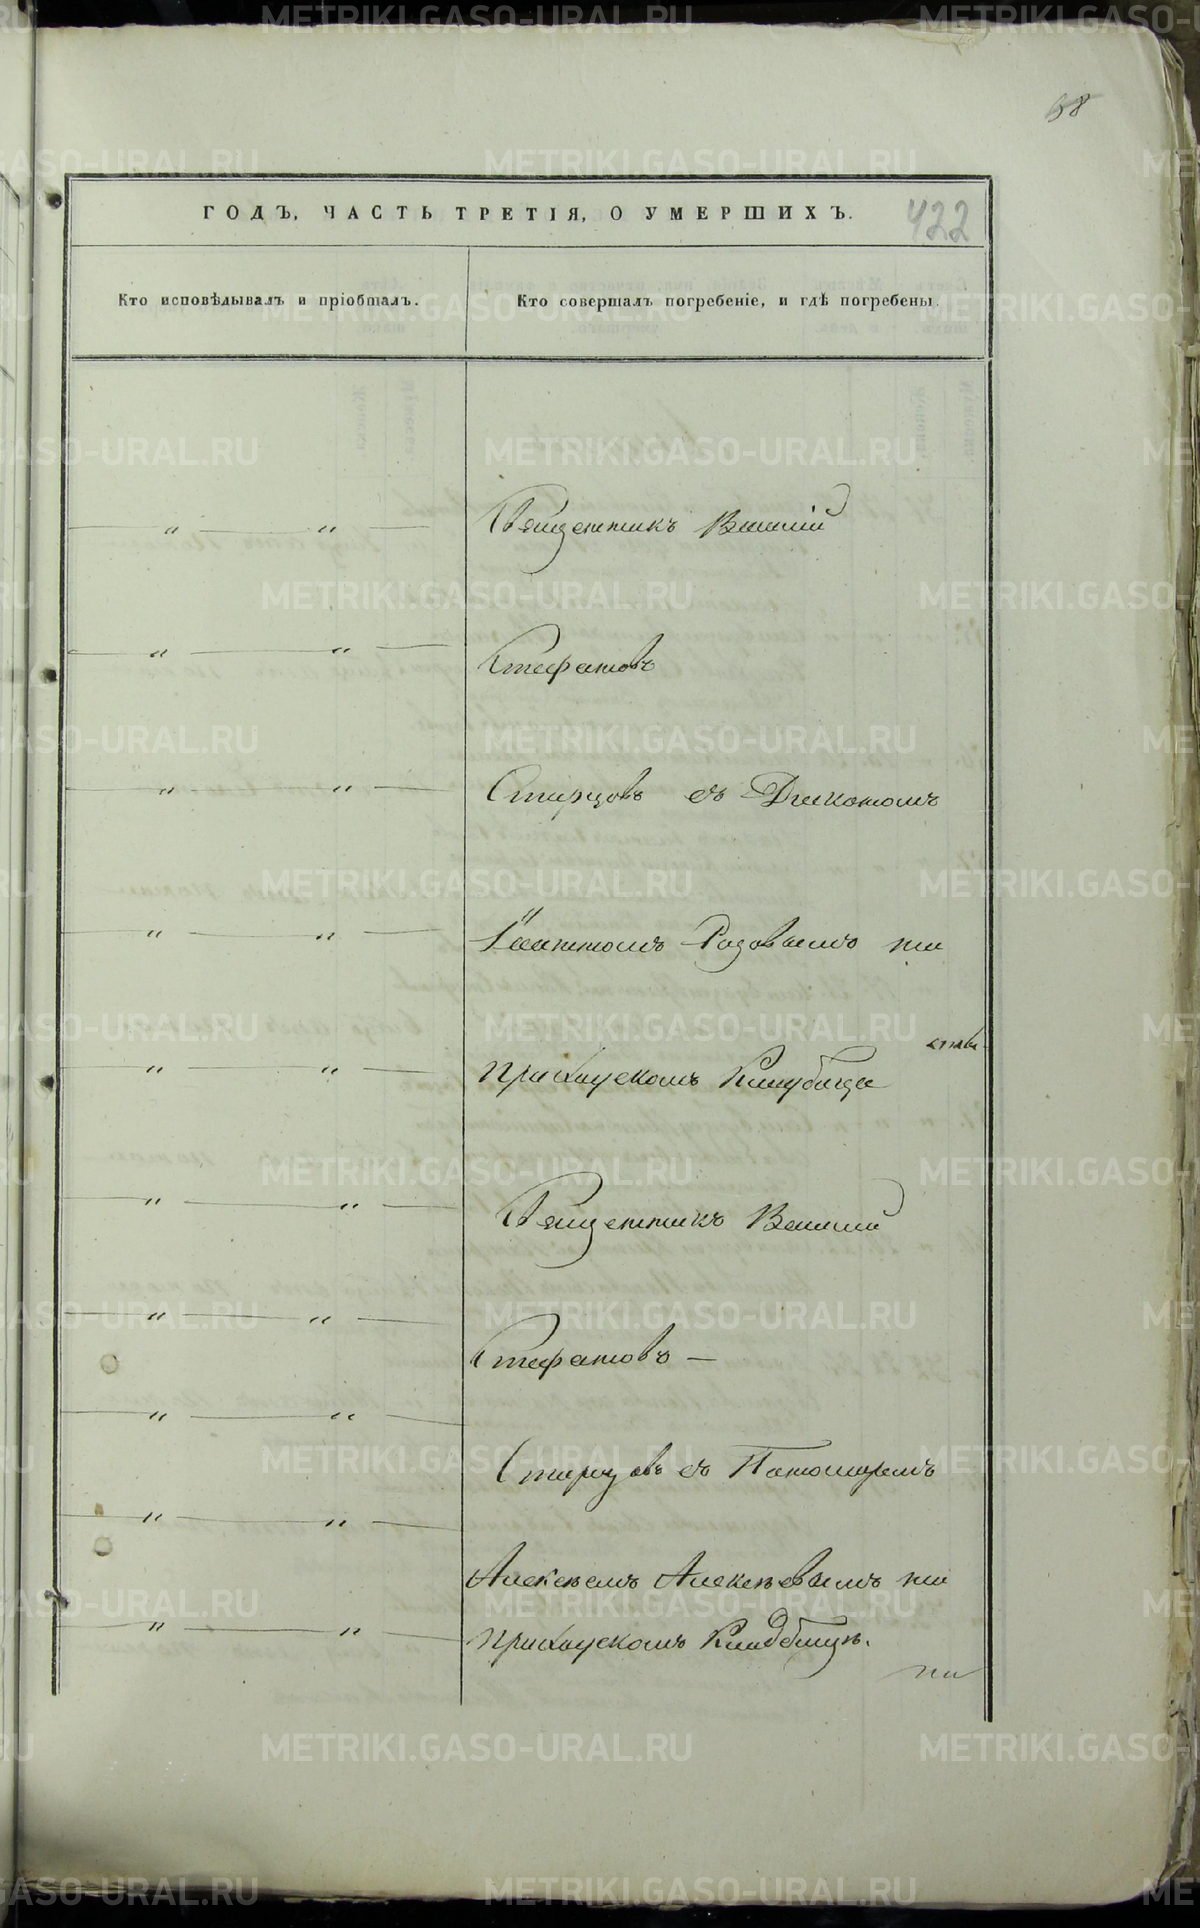 68
ГОДЪ, ЧАСТЬ ТРЕТІЯ, О УМЕРШИХЪ. 422
Кто исповѣдывалъ и пріобщалъ. Кто совершалъ погребеніе, и гдѣ погребены.
" " Священникъ
" " Стефановъ
" " Старцовъ съ Діакономъ
" " Іоанномъ на
" " приходскомъ
" " Священникъ
" " Стефановъ —
" " Старцовъ съ Пономаремъ
" " Алексѣемъ Алексѣевымъ на
" " приходскомъ Кладбищѣ.
METRIKI.GASO-URAL.RU